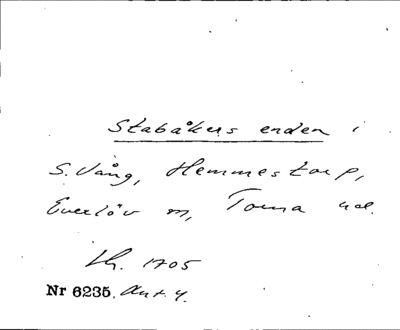 Stabåkers enden i
S. Vång, Hemmestorp,
Everlöv sn, Torna hd.
Lh. 1705
Nr 6235. Akt 4.